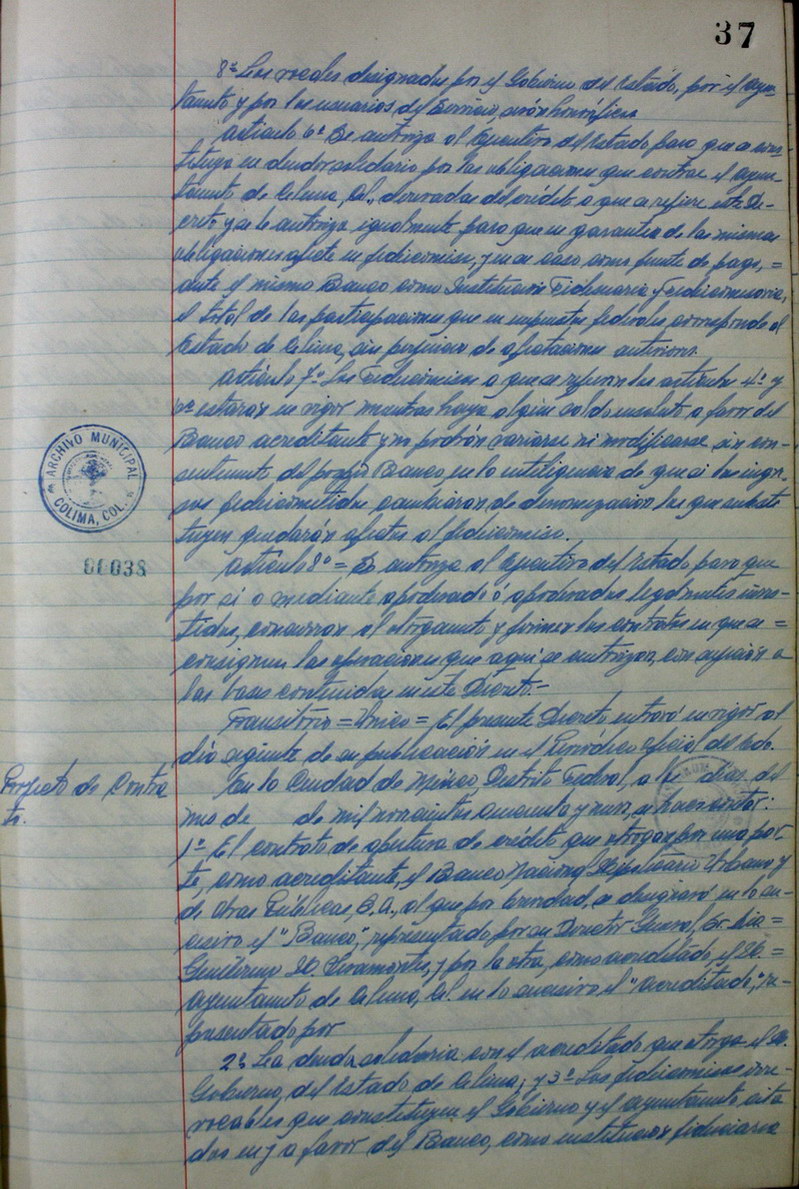 37
8ª Los vocales designados por el Gobierno del Estado, por el Ayun-
tamiento y por los usuarios del Servicio serán honoríficos.
Artículo 6º Se autoriza al Ejecutivo del Estado para que se cons-
tituya en deudor solidario por las obligaciones que contrae el Ayun-
tamiento de Colima, Col., derivadas del crédito a que se refiere este De-
creto y se le autoriza igualmente para que en garantía de las mismas
obligaciones afecte en fideicomiso, y en su caso como fuente de pago, =
ante el mismo Banco como Institución Fiduciaria y Fideicomisaria,
el total de las participaciones que en impuestos federales corresponde al
Estado de Colima, sin perjuicio de afectaciones anteriores.
Artículo 7º Los Fideicomisos a que se refieren los artículos 4º y
6º estarán en vigor mientras haya algún saldo insoluto a favor del
Banco acreditante y no podrán variarse ni modificarse sin con-
sentimiento del propio Banco, en la inteligencia de que si los ingre-
sos fideicometidos cambiaran de denominación los que substi
tuyen quedarán afectos al fideicomiso.
ARCHIVO MUNICIPAL
COLIMA, COL.
00038
Artículo 8º = Se autoriza al Ejecutivo del Estado, para que
por si o mediante apoderado ó apoderados legalmente inves-
tidos, concurran al otorgamiento y firmen los contratos en que se =
consignen las operaciones que aquí se autorizan, con sujeción a
las bases contenidas en este Decreto.-
Transitorio = Unico = El presente Decreto entrará en vigor al
día siguiente de su publicación en el Periódico Oficial del Edo.
Proyecto de Contra
to.
En la Ciudad de México, Distrito Federal, a los días del
mes de de mil novecientos cuarenta y nueve, se hace constar:
1º El contrato de apertura de crédito que otorgan por una par-
te, como acreditante, el Banco Nacional Hipotecario Urbano y
de Obras Públicas, S.A., al que por brevedad, se designará en lo su-
cesivo el "Banco", representado por su Director General, Sr.
Guillermo y por la otra, como acreditado, el H. =
Ayuntamiento de Colima, Col. en lo sucesivo el "Acreditado," re-
presentado por
2º La deuda solidaria con el acreditado que otorga el H.
Gobierno, del Estado de Colima; y 3º Los fideicomisos irre-
vocables que constituyen el Gobierno y el Ayuntamiento cita
dos en y a favor del Banco, como institución fiduciaria